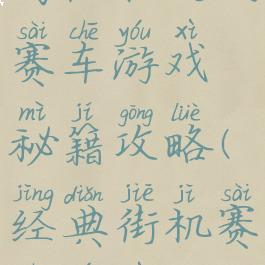 sài chē yóu xì
赛车游戏
mì jí gōng lüè
秘籍攻略(
jīng diǎn jiē jī sài
经典街机赛